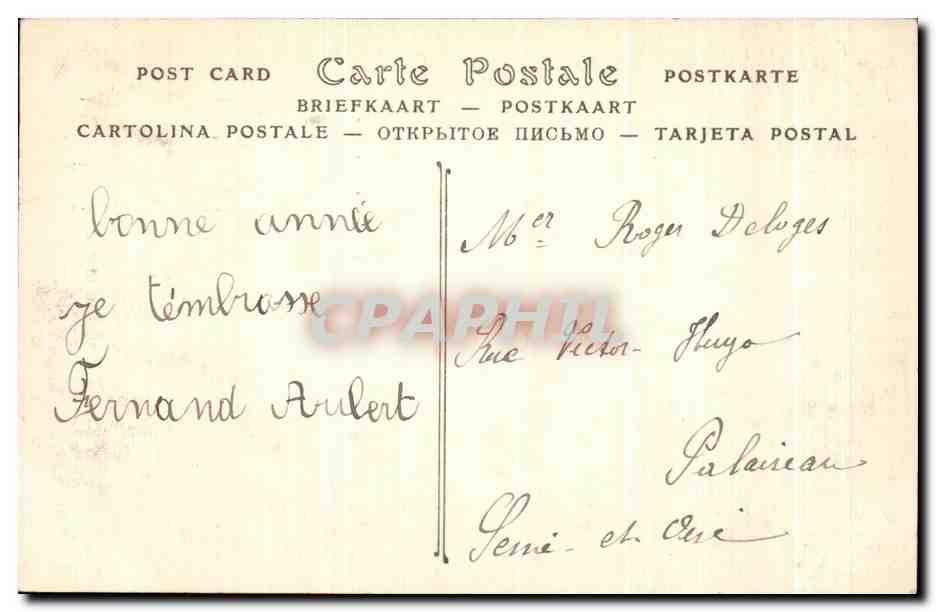 POST CARD Carte Postale POSTKARTE
BRIEFKAART — POSTKAART
CARTOLINA POSTALE — ОТКРЫТОЕ ПИСЬМО — TARJETA POSTAL
bonne année
je t'émbrasse
Fernand Aubert
Mer Roger Deloges
Rue Victor-Hugo
Palaiseau
Seine-et Oise
CPAPHIL